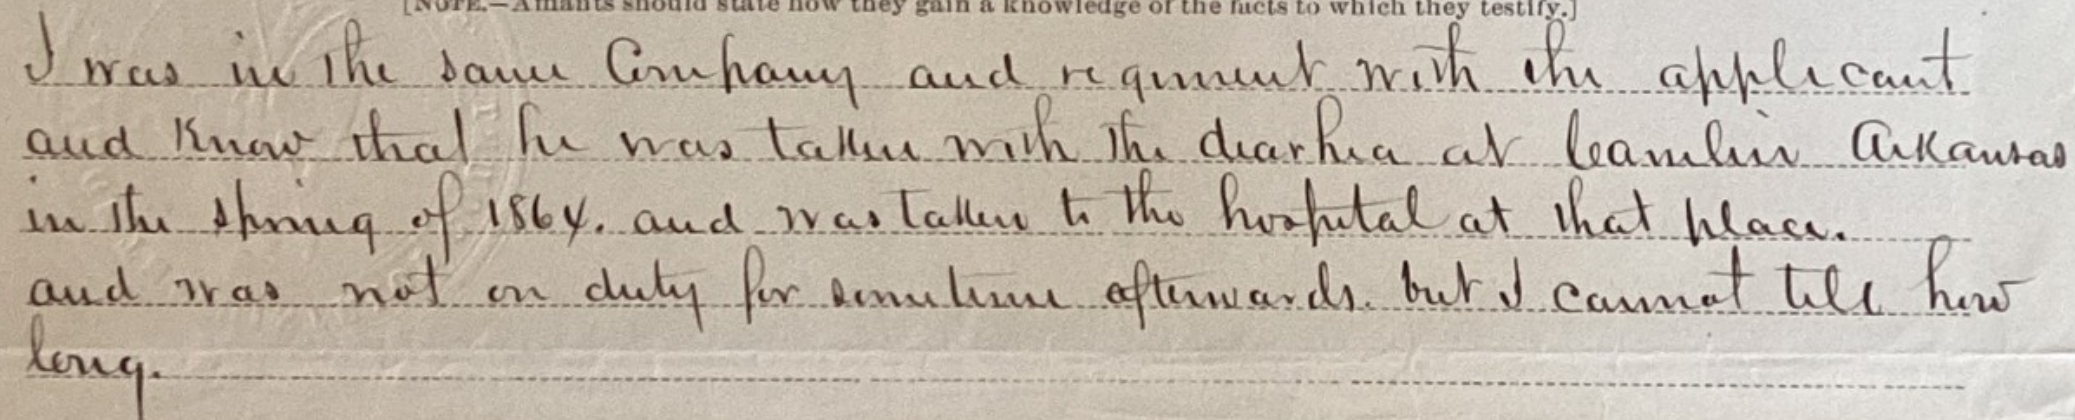 [NOTE.—Affiants should state how they gain a knowledge of the facts to which they testify.]
I was in the same Company and regiment with the applicant
and Know that he was taken with the diarhea at Camden Arkansas
in the spring of 1864. and was taken to the hospital at that place.
and was not on duty for sometime afterwards. but I cannot tell how
long.